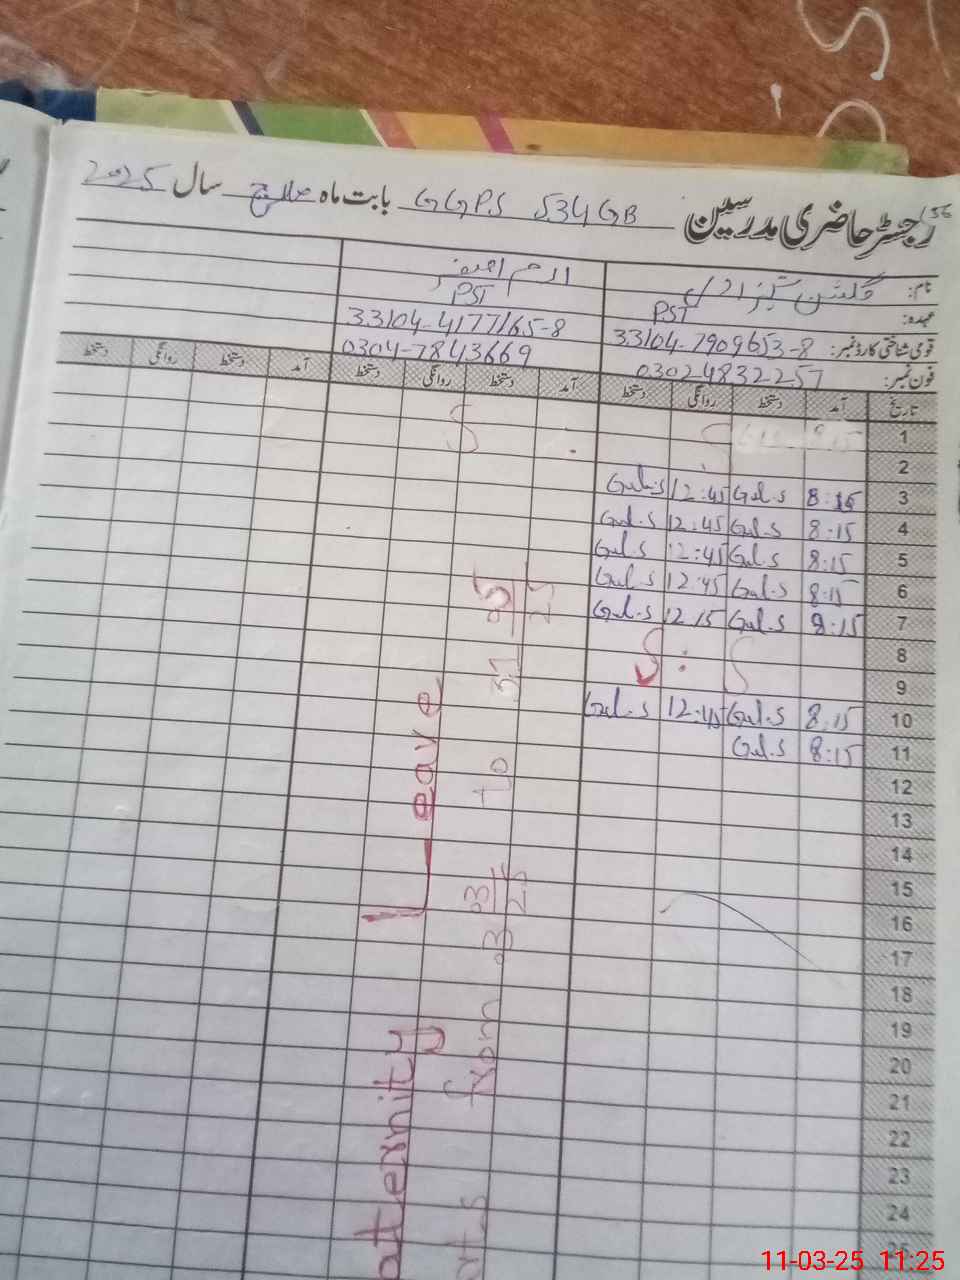 156
رجسٹر حاضری مدرسین GGPS 534 GB بابت ماہ مارچ سال 2025
نام: گلشن
عہدہ: PST PST
قومی شناختی کارڈ نمبر: 33104-7909653-8 33104-4177165-8
فون نمبر: 03024832257 0304-7843669
تاریخ آمد دستخط روانگی دستخط آمد دستخط روانگی دستخط آمد دستخط روانگی دستخط
1 S S
2
3 8:15 Gul.S 12:45 Gul.S
4 8:15 Gul.S 12:45 Gul.S
5 8:15 Gul.S 12:45 Gul.S
6 8:15 Gul.S 12:45 Gul.S
7 8:15 Gul.S 12:15 Gul.S
8 S : S
9
10 8:15 Gul.S 12:45 Gul.S
11 8:15 Gul.S
12
13
14
15
16
17
18
19
20
21
22
23
24
25
aternity Leave
from 03 03/25 to 31 05/25
11-03-25 11:25